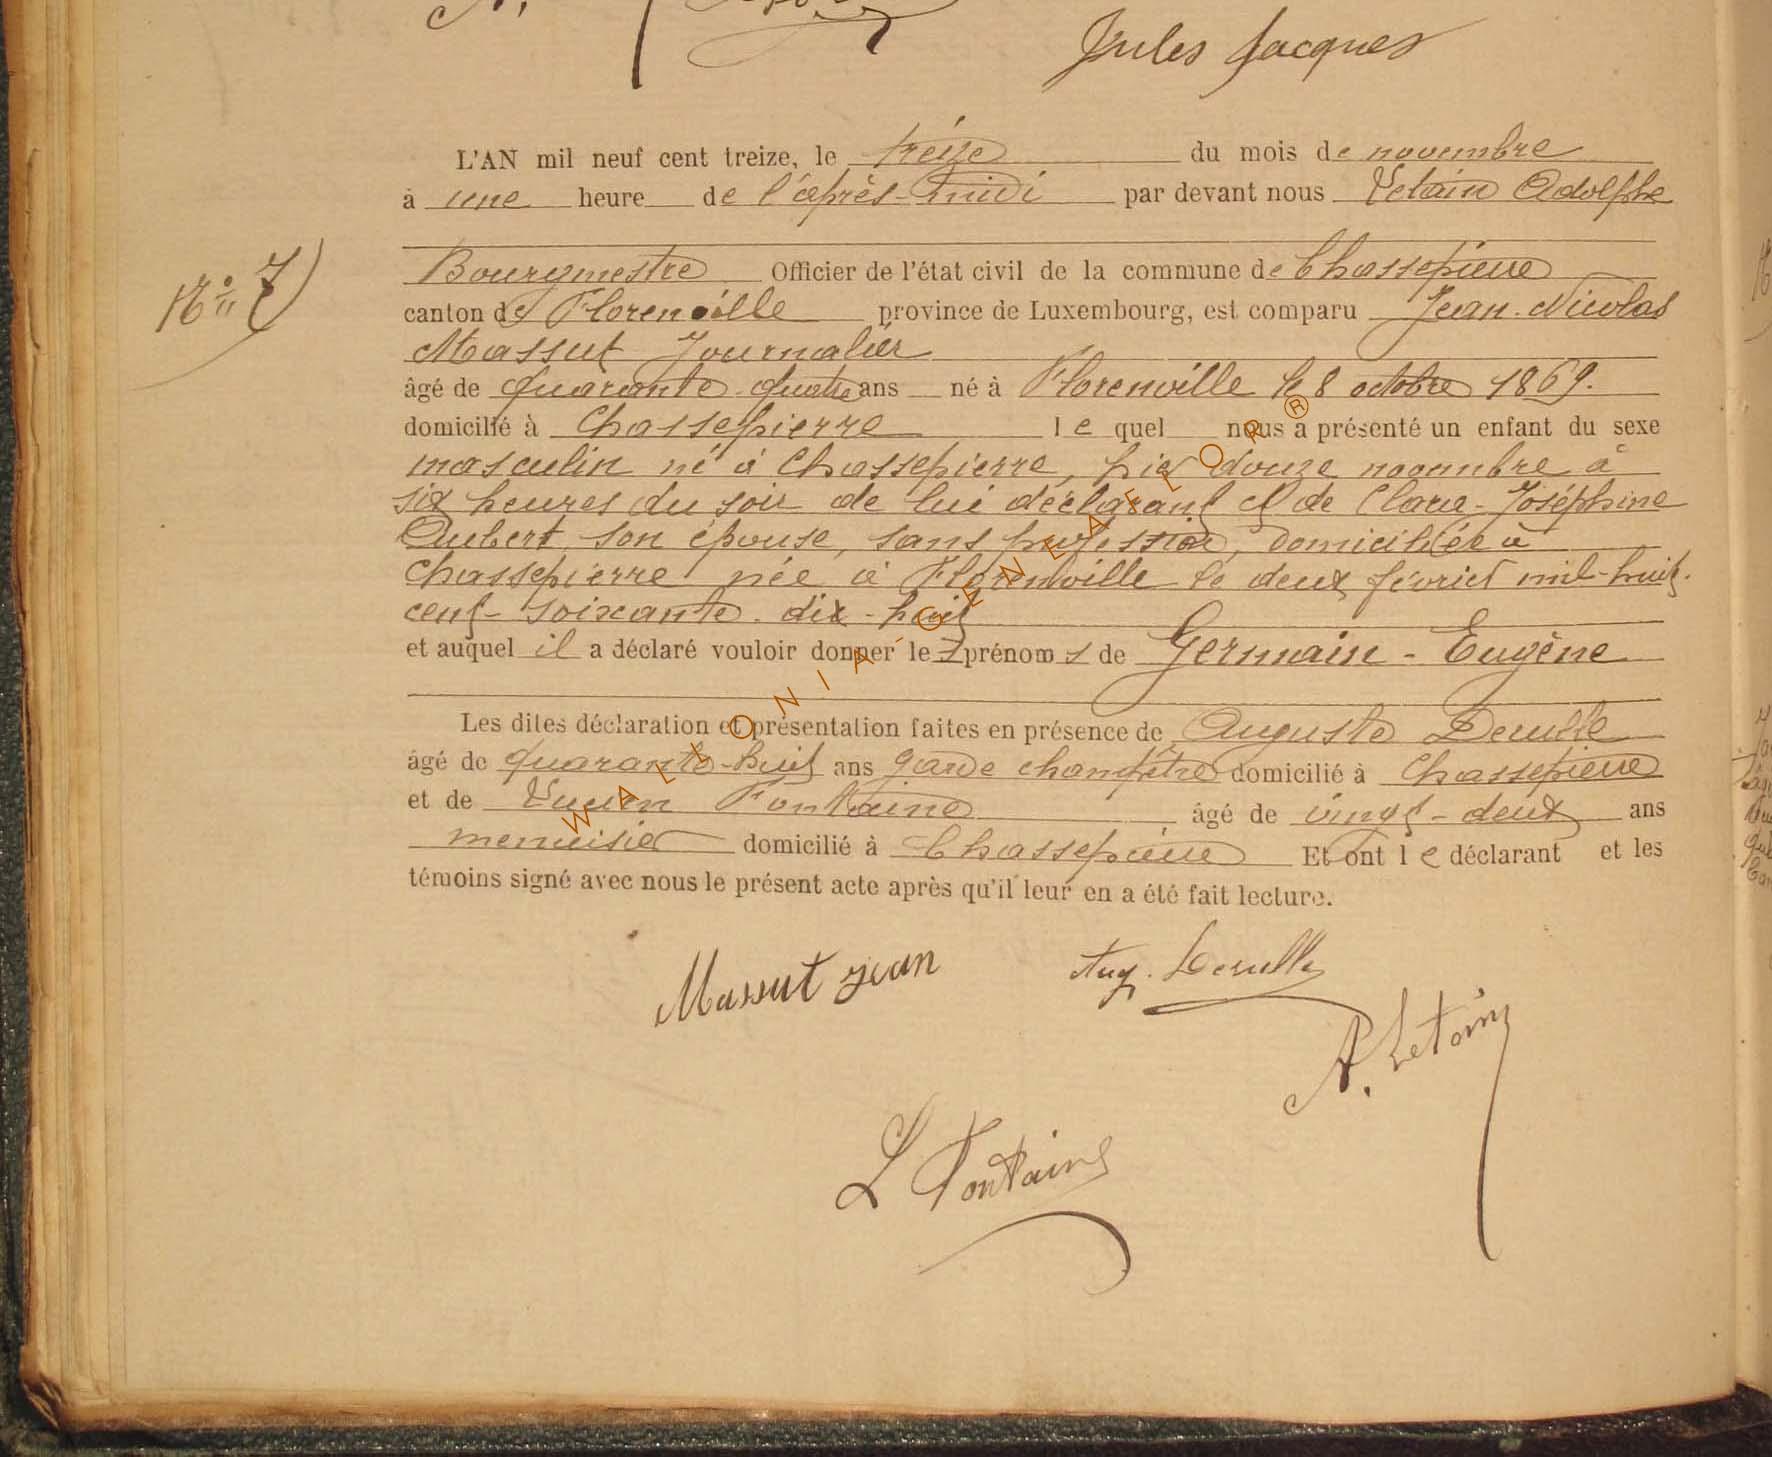 Jules Jacques
L'AN mil neuf cent treize, le treize du mois de novembre
à une heure de l'après-midi par devant nous Létain Adolphe
Bourgmestre Officier de l'état civil de la commune de Chassepierre
N° 7
canton de Florenville province de Luxembourg, est comparu Jean-Nicolas
Massut Journalier
âgé de quarante-quatre ans né à Florenville le 8 octobre 1869.
domicilié à Chassepierre lequel nous a présenté un enfant du sexe
masculin né à Chassepierre, hier douze novembre à
six heures du soir de lui déclarant et de Claire-Joséphine
Aubert, son épouse, sans profession, domiciliée à
Chassepierre née à Florenville le deux février mil-huit-
cent-soixante-dix-huit
et auquel il a déclaré vouloir donner les prénoms de Germain-Eugène
Les dites déclaration et présentation faites en présence de Auguste Derulle
âgé de quarante-huit ans garde champêtre domicilié à Chassepierre
et de Lucien Fontaine âgé de vingt-deux ans
menuisier domicilié à Chassepierre Et ont le déclarant et les
témoins signé avec nous le présent acte après qu'il leur en a été fait lecture.
Massut Jean
Aug. Derulle
A. Letain
L Fontaine
WALLONIA-GENEAFLOR ®